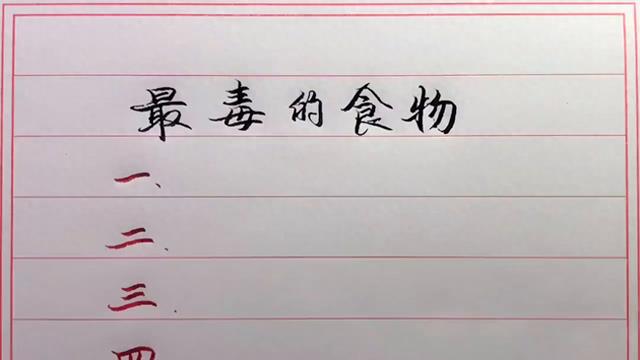 最毒的食物
一、
二、
三、
四